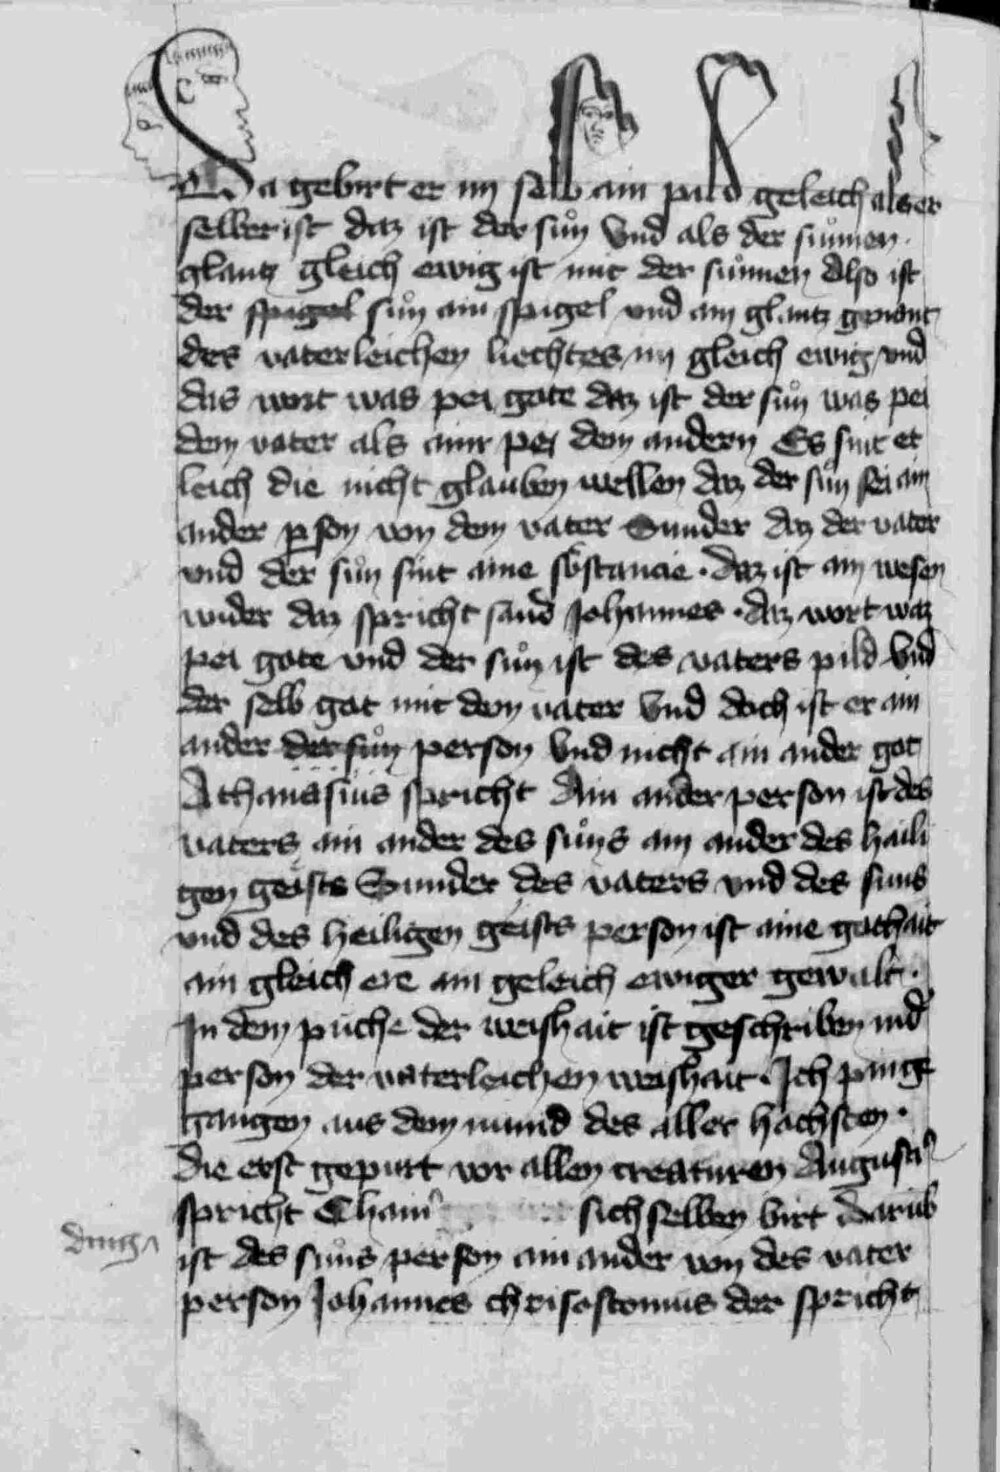 Da gebirt er im selb ain pild geleich als er
selber ist daz ist der suͦn Vnd als der suͦnnen
glantz gleich ewig ist mit der suͦnnen Also ist
der spigel suͦn ain spigel vnd ain glantz genant
des vaterleichen liechtes im gleich ewig vnd
das wort was pei gote daz ist der suͦn was pei
dem vater als ainr pei dem andern Es sint et
leich die nicht glauben wellen daz der suͦn sei ain
ander pson von dem vater Sunder daz der vater
vnd der suͦn sint aine sbstancie · daz ist ain wesen
wider daz spricht sand Johannes · daz wort waz
pei gote vnd der suͦn ist des vaters pild Vnd
der selb got mit dem vater Vnd doch ist er ain
ander der suͦn person Vnd nicht ain ander got
Athanasius spricht Ain ander person ist des
vaters ain ander des suͦns ain ander des haili
gen geists Sunder des vaters vnd des suns
vnd des heiligen geists person ist aine gothait
ain gleich ere ain geleich ewiger gewalt ·
In dem puche der weishait ist geschriben in d
person der vaterleichen weishait · Ich pin ge
gangen aus dem mund des aller hachsten ·
die erst gepurt vor allen creaturen Augusti
spricht Chain sich selben birt darub
ding
ist des suͦns person ain ander von des vater
person Johannes chrisostomus der spricht